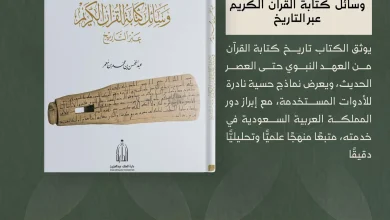 وسائل كتابة القرآن الكريم
عبر التاريخ
يوثق الكتاب تاريخ كتابة القرآن
من العهد النبوي حتى العصر
الحديث، ويعرض نماذج حسية نادرة
للأدوات المستخدمة، مع إبراز دور
المملكة العربية السعودية في
خدمته، متبعًا منهجًا علميًّا وتحليليًّا
دقيقًا
وسائل كتابة القرآن الكريم
عبر التاريخ